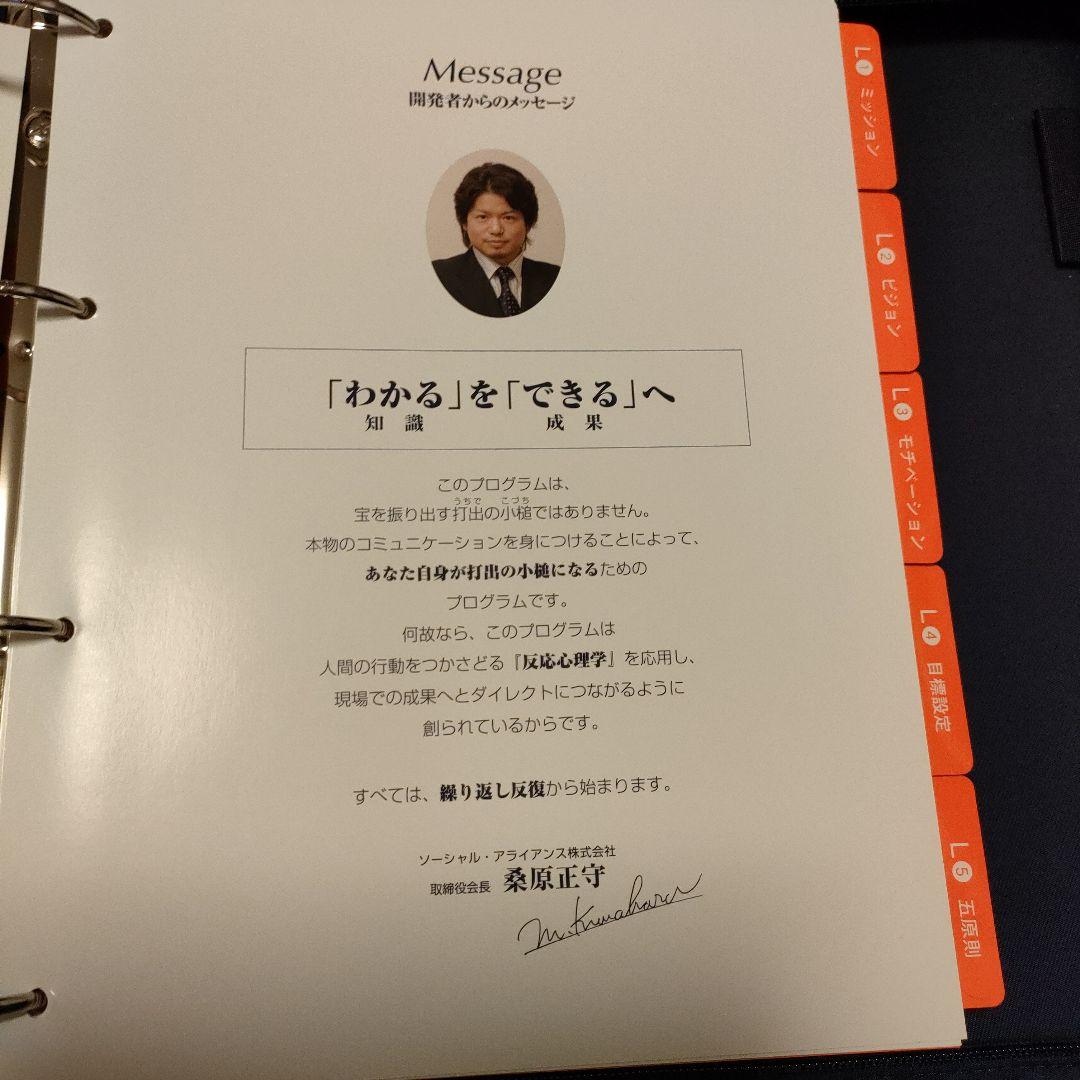 Message
開発者からのメッセージ
「わかる」を「できる」へ
知識 成果
このプログラムは、
うちで こづち
宝を振り出す打出の小槌ではありません。
本物のコミュニケーションを身につけることによって、
あなた自身が打出の小槌になるための
プログラムです。
何故なら、このプログラムは
人間の行動をつかさどる『反応心理学』を応用し、
現場での成果へとダイレクトにつながるように
創られているからです。
すべては、繰り返し反復から始まります。
ソーシャル・アライアンス株式会社
取締役会長 桑原正守
M.Kuwahara
L1 ミッション
L2 ビジョン
L3 モチベーション
L4 目標設定
L5 五原則